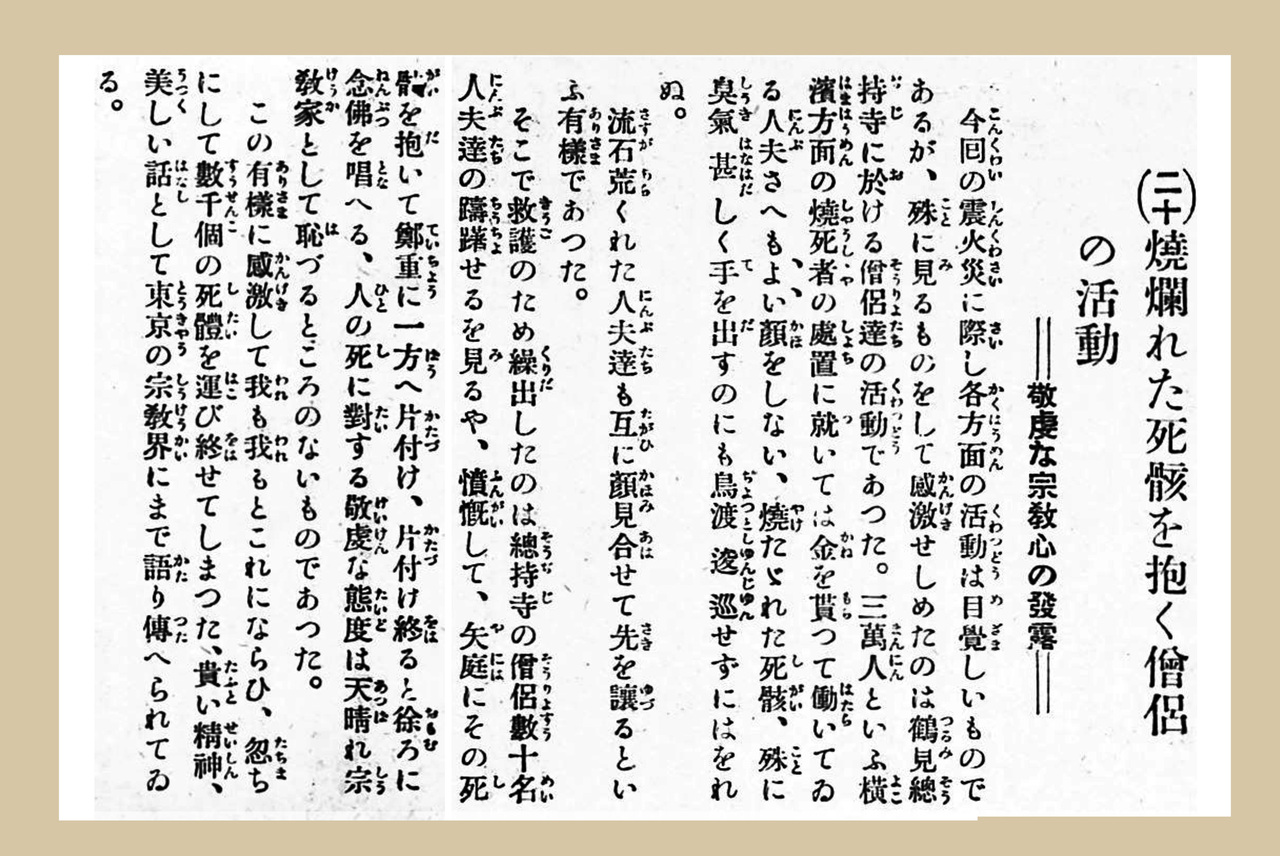 (二十)燒爛れた死骸を抱く僧侶
の活動
＝＝敬虔な宗敎心の發露＝＝
今回の震火災に際し各方面の活動は目覺しいもので
あるが、殊に見るものをして感激せしめたのは鶴見總
持寺に於ける僧侶達の活動であつた。三萬人といふ橫
濱方面の燒死者の處置に就いては金を貰つて働いてゐ
る人夫さへもよい顏をしない、燒たゞれた死骸、殊に
臭氣甚しく手を出すのにも鳥渡逡巡せずにはをれ
ぬ。
流石荒くれた人夫達も互に顏見合せて先を讓るとい
ふ有樣であつた。
そこで救護のため繰出したのは總持寺の僧侶數十名
人夫達の躊躇せるを見るや、憤慨して、矢庭にその死
骸を抱いて鄭重に一方へ片付け、片付け終ると徐ろに
念佛を唱へる、人の死に對する敬虔な態度は天晴れ宗
敎家として恥づるところのないものであつた。
この有樣に感激して我も我もとこれにならひ、忽ち
にして數千個の死體を運び終せてしまつた、貴い精神、
美しい話として東京の宗敎界にまで語り傳へられてゐ
る。